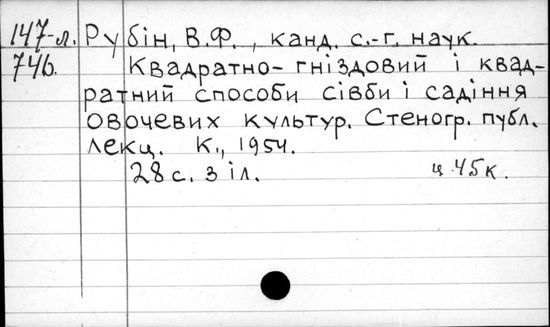 147-л. Рубін, В.Ф., канд. с.-г. наук.
746. Квадратно-гніздовий і квад-
ратний способи сівби і садіння
овочевих культур. Стеногр. публ.
лекц. К., 1954.
28 с. з іл. ц. 45 к.